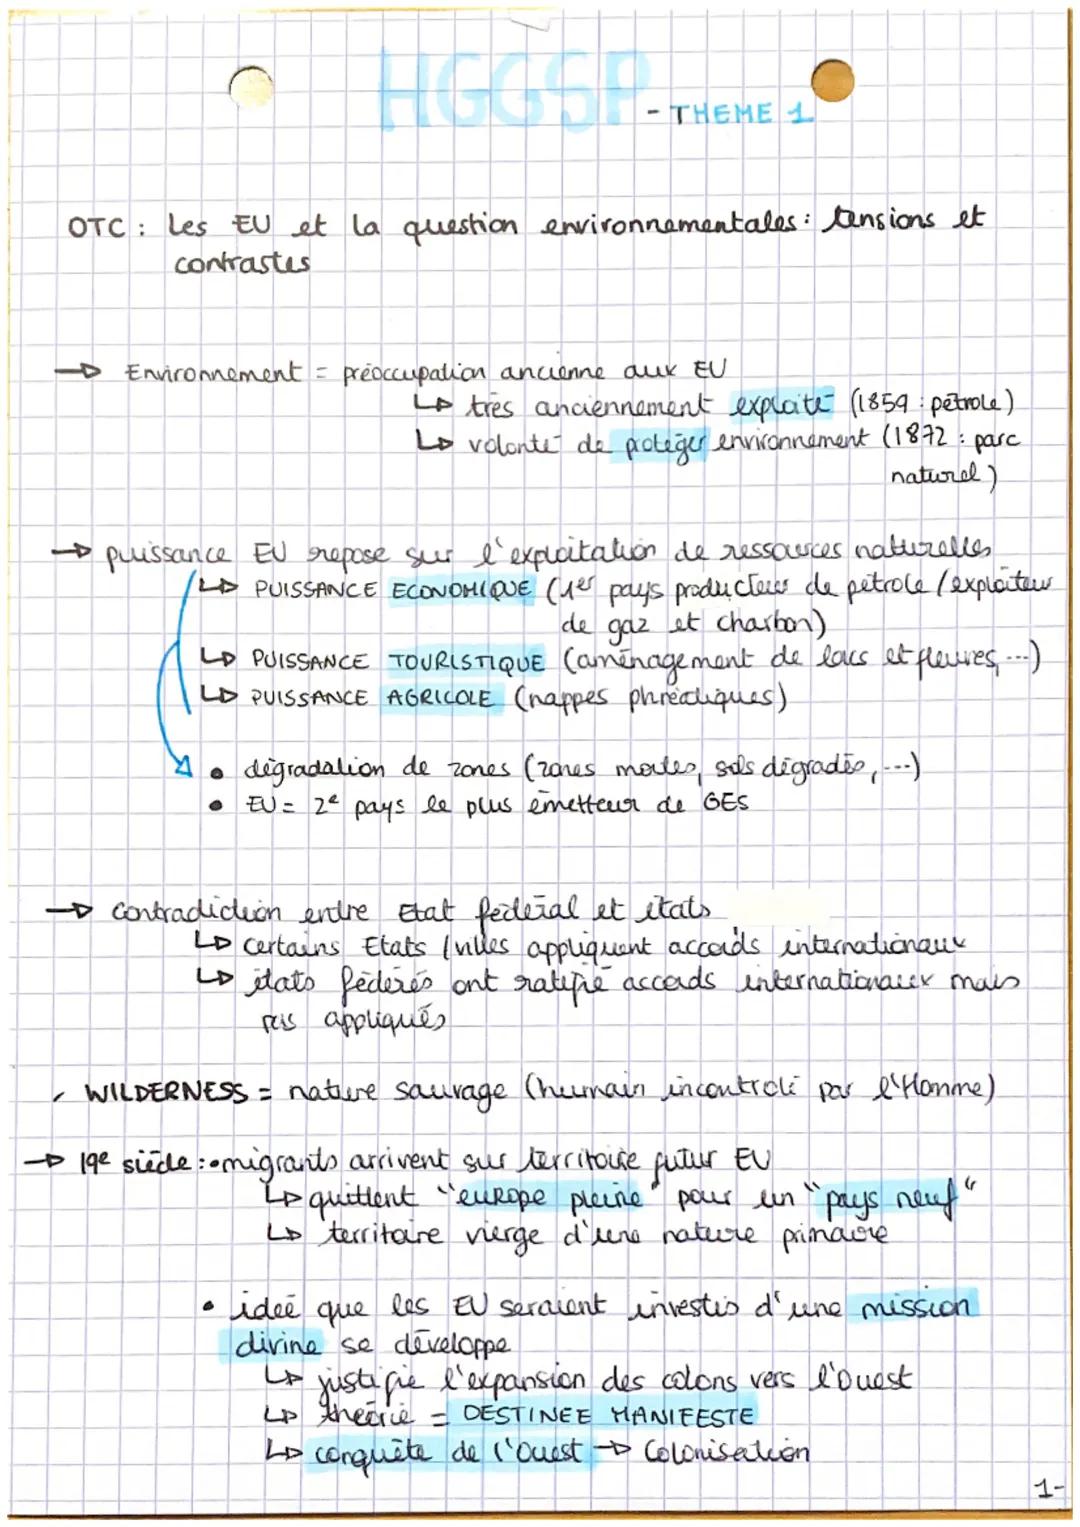 HGGSP - THEME 1
OTC : Les EU et la question environnementales : tensions et
contrastes
→ Environnement = préoccupation ancienne aux EU
↳ très anciennement exploité (1859 : pétrole)
↳ volonté de protéger environnement (1872 : parc
naturel)
→ puissance EU repose sur l'exploitation de ressources naturelles
↳ PUISSANCE ECONOMIQUE (1er pays producteur de pétrole / exploiteur
de gaz et charbon)
↳ PUISSANCE TOURISTIQUE (aménagement de lacs et fleuves, ...)
↳ PUISSANCE AGRICOLE (nappes phréatiques)
• dégradation de zones (zones mortes, sols dégradés, ...)
• EU = 2e pays le plus émetteur de GES
→ contradiction entre Etat fédéral et états
↳ certains Etats / villes appliquent accords internationaux
↳ états fédérés ont ratifié accords internationaux mais
pas appliqués
WILDERNESS = nature sauvage (humain incontrolé par l'Homme)
→ 19e siècle : • migrants arrivent sur territoire futur EU
↳ quittent "europe pleine" pour un "pays neuf"
↳ territoire vierge d'une nature primaire
• idée que les EU seraient investis d'une mission
divine se développe
↳ justifie l'expansion des colons vers l'Ouest
↳ théorie = DESTINEE MANIFESTE
↳ conquête de l'Ouest → Colonisation
1-